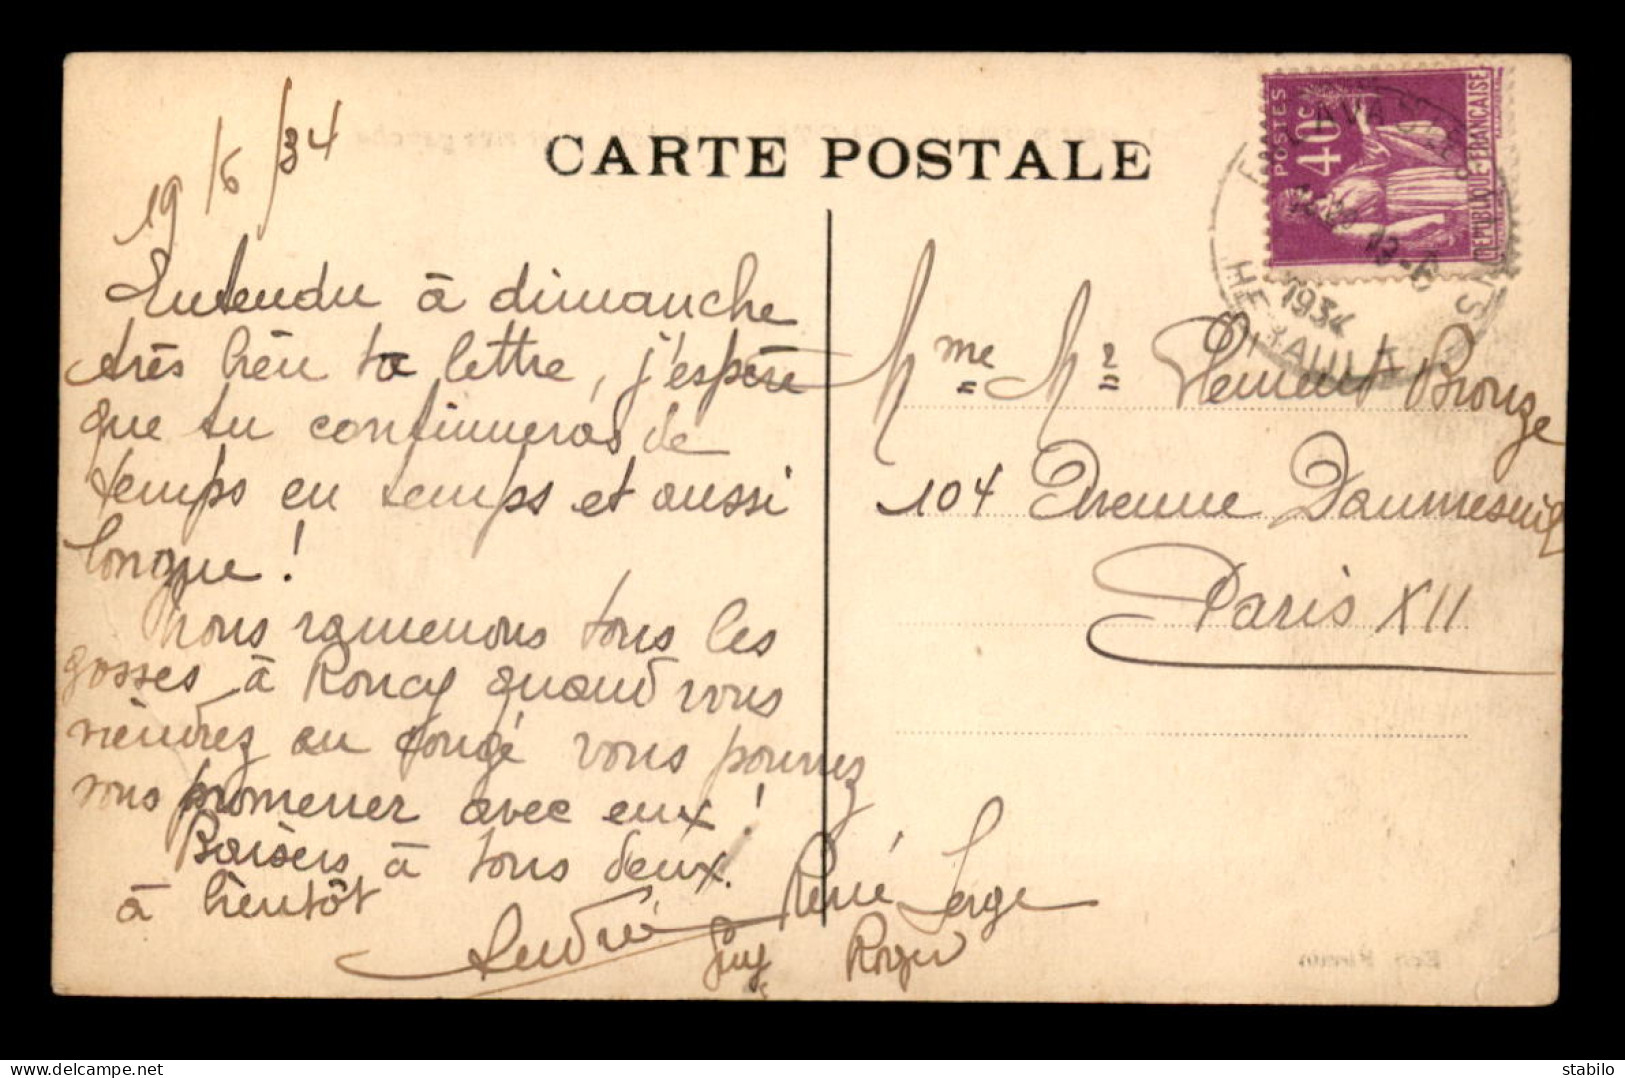 CARTE POSTALE
19/6/34
Entendu à dimanche
très bien ta lettre, j'espère
que tu continueras de
temps en temps et aussi
longue !
Nous ramenons tous les
gosses à Roncy quand vous
viendrez en congé vous pourrez
vous promener avec eux !
Baisers à tous deux !
à bientôt
André René Serge
Guy Roger
POSTES
40c
REPUBLIQUE FRANÇAISE
1934
HERAULT
Mme Mr Clement Bronze
104 Avenue Daumesnil
Paris XII
delcampe.net
stabilo